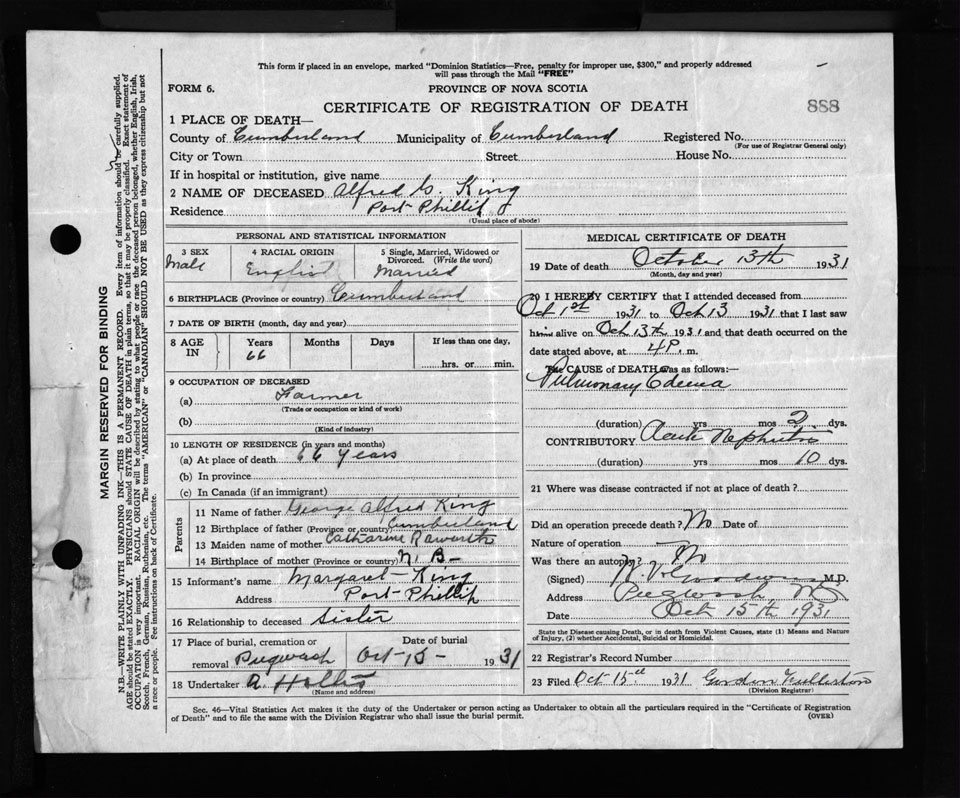 This form if placed in an envelope, marked "Dominion Statistics—Free, penalty for improper use, $300," and properly addressed
will pass through the Mail "FREE"
FORM 6.
PROVINCE OF NOVA SCOTIA
CERTIFICATE OF REGISTRATION OF DEATH
888
1 PLACE OF DEATH—
County of Cumberland Municipality of Cumberland Registered No.
(For use of Registrar General only)
City or Town Street House No.
If in hospital or institution, give name
2 NAME OF DECEASED Alfred G. King
Residence Port Phillip
(Usual place of abode)
PERSONAL AND STATISTICAL INFORMATION
3 SEX 4 RACIAL ORIGIN 5 Single, Married, Widowed or
Divorced. (Write the word)
Male English Married
6 BIRTHPLACE (Province or country) Cumberland
7 DATE OF BIRTH (month, day and year)
8 AGE IN Years Months Days If less than one day,
66 hrs. or min.
9 OCCUPATION OF DECEASED
(a) Farmer
(Trade or occupation or kind of work)
(b)
(Kind of industry)
10 LENGTH OF RESIDENCE (in years and months)
(a) At place of death 66 Years
(b) In province
(c) In Canada (if an immigrant)
Parents
11 Name of father George Alfred King
12 Birthplace of father (Province or country) Cumberland
13 Maiden name of mother Catharine Raworth
14 Birthplace of mother (Province or country) N. B—
15 Informant's name Margaret King
Address Port Phillip
16 Relationship to deceased Sister
17 Place of burial, cremation or Date of burial
removal Pugwash Oct 15— 1931
18 Undertaker A Hollis
(Name and address)
MEDICAL CERTIFICATE OF DEATH
19 Date of death October 13th 1931
(Month, day and year)
20 I HEREBY CERTIFY that I attended deceased from
Oct 1st 1931 to Oct 13 1931 that I last saw
him alive on Oct 13th 1931 and that death occurred on
date stated above, at 4 P. m.
The CAUSE OF DEATH was as follows:—
Pulmonary Edema
(duration) yrs mos 2 dys.
CONTRIBUTORY Acute Nephritis
(duration) yrs mos 10 dys.
21 Where was disease contracted if not at place of death?
Did an operation precede death? No Date of
Nature of operation
Was there an autopsy? No
(Signed) M.D.
Address Pugwash, N.S.
Date Oct 15th 1931
State the Disease causing Death, or in death from Violent Causes, state (1) Means and Nature
of Injury, (2) whether Accidental, Suicidal or Homicidal.
22 Registrar's Record Number
23 Filed Oct 15th 1931 Gordon Fullerton
(Division Registrar)
Sec. 46—Vital Statistics Act makes it the duty of the Undertaker or person acting as Undertaker to obtain all the particulars required in the "Certificate of Registration
of Death" and to file the same with the Division Registrar who shall issue the burial permit. (OVER)
MARGIN RESERVED FOR BINDING
N.B.—WRITE PLAINLY WITH UNFADING INK—THIS IS A PERMANENT RECORD. Every item of information should be carefully supplied.
AGE should be stated EXACTLY. PHYSICIANS should STATE CAUSE OF DEATH in plain terms, so that it may be properly classified. Exact statement of
OCCUPATION is very important. RACIAL ORIGIN will be described by stating to what people or race the deceased person belonged, whether English, Irish,
Scotch, French, German, Russian, Ruthenian, etc. The terms "AMERICAN" or "CANADIAN" SHOULD NOT BE USED as they express citizenship but not
a race or people. See instructions on back of Certificate.